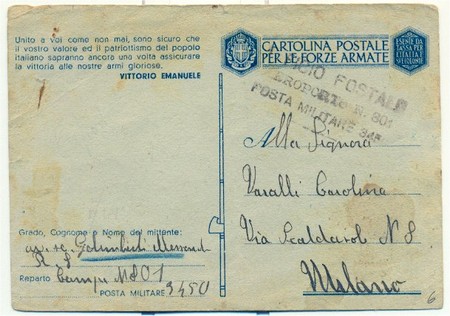 Unito a voi come non mai, sono sicuro che
il vostro valore ed il patriottismo del popolo
italiano sapranno ancora una volta assicurare
la vittoria alle nostre armi gloriose.
VITTORIO EMANUELE
CARTOLINA POSTALE
PER LE FORZE ARMATE
ESENTE DA
TASSA PER
L'ITALIA
E SUE COLONIE
UFFICIO POSTALE
AEROPORTO N. 801
POSTA MILITARE 345
Alla Signora
Varalli Carolina
Via Scaldasole N 8
Milano
Grado, Cognome e Nome del mittente:
Reparto Campo N 801
POSTA MILITARE 3450
6